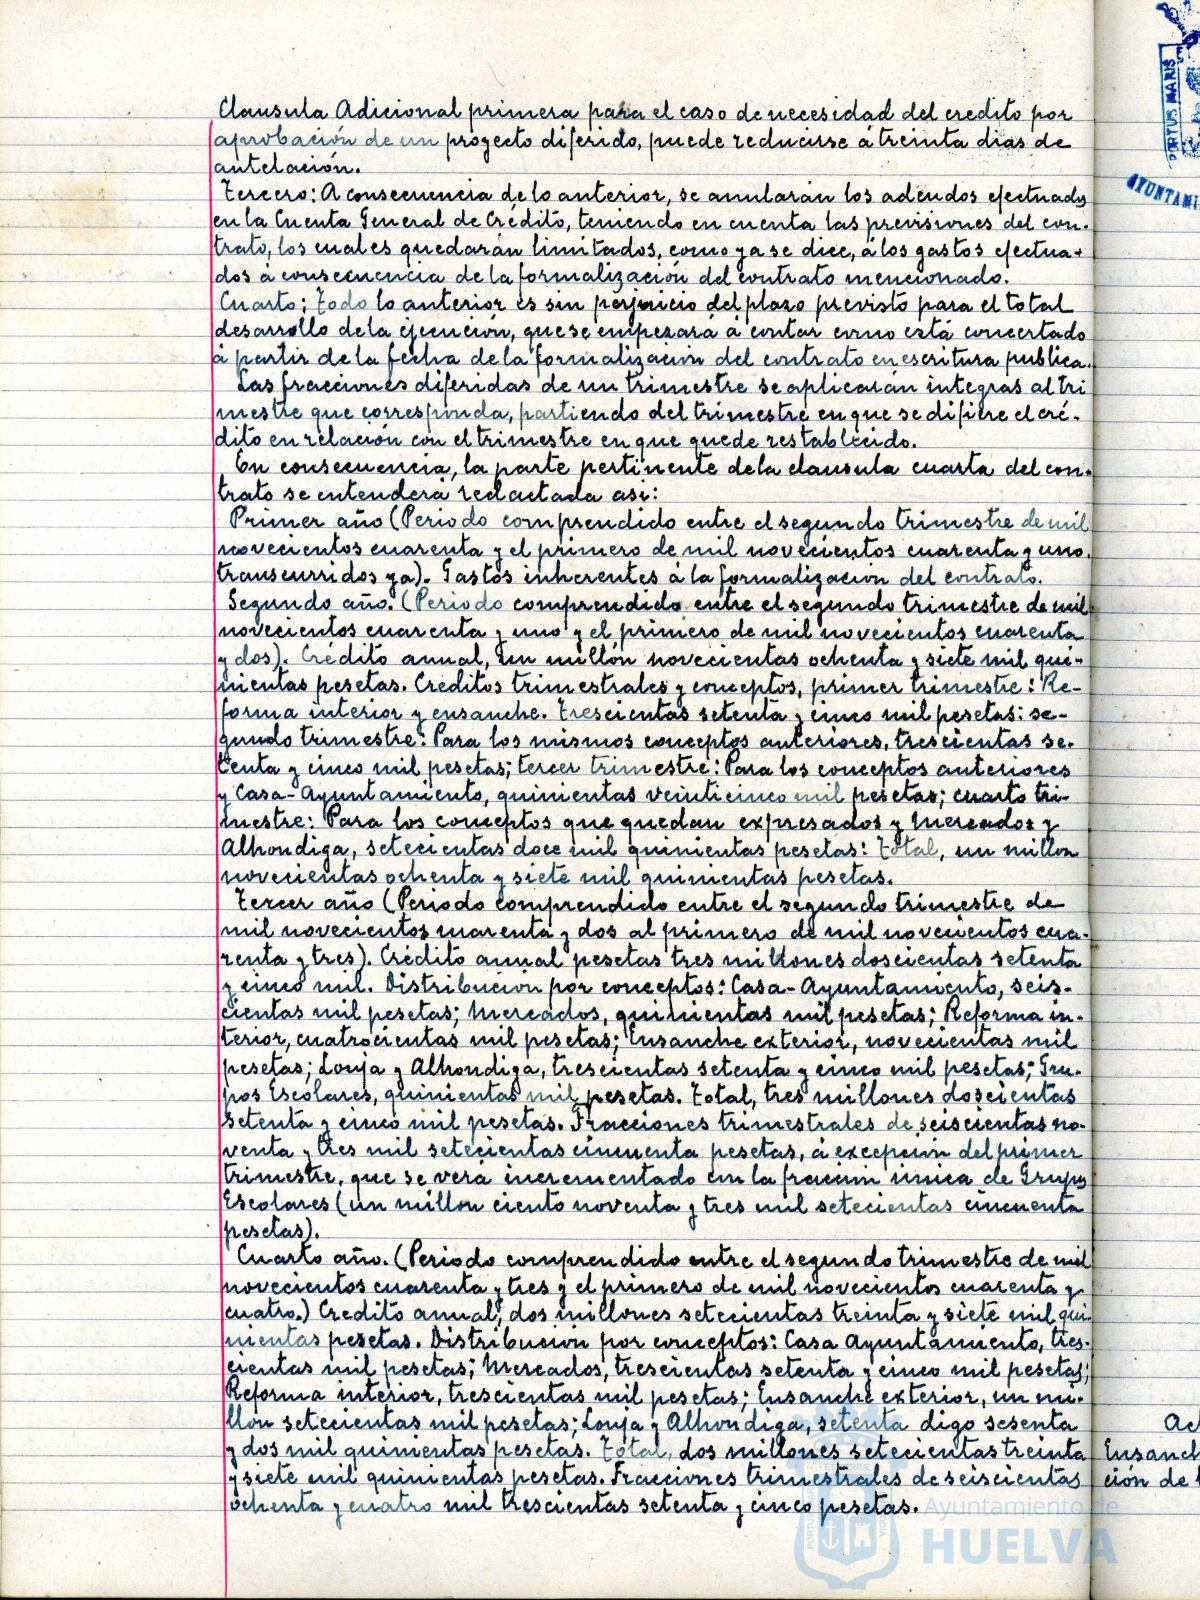 Clausula Adicional primera para el caso de necesidad del credito por
aprobación de un proyecto diferido, puede reducirse á treinta dias de
antelación.
Tercero: A consecuencia de lo anterior, se anularán los adeudos efectuados
en la Cuenta General de Crédito, teniendo en cuenta las previsiones del con-
trato, los cuales quedarán limitados, como ya se dice, á los gastos efectua-
dos á consecuencia de la formalización del contrato mencionado.
Cuarto: Todo lo anterior es sin perjuicio del plazo previsto para el total
desarrollo de la ejecución, que se empezará á contar como está concertado
á partir de la fecha de la formalización del contrato en escritura publica.
Las fracciones diferidas de un trimestre se aplicarán integras al tri
mestre que corresponda, partiendo del trimestre en que se difiere el cré-
dito en relación con el trimestre en que quede restablecido.
En consecuencia, la parte pertinente de la clausula cuarta del con-
trato se entenderá redactada asi:
Primer año (Periodo comprendido entre el segundo trimestre de mil
novecientos cuarenta y el primero de mil novecientos cuarenta y uno,
transcurridos ya). Gastos inherentes á la formalización del contrato.
Segundo año. (Periodo comprendido entre el segundo trimestre de mil
novecientos cuarenta y uno y el primero de mil novecientos cuarenta
y dos). Crédito anual, un millón novecientas ochenta y siete mil qui-
nientas pesetas. Creditos trimestrales y conceptos, primer trimestre: Re-
forma interior y ensanche. Trescientas setenta y cinco mil pesetas: se-
gundo trimestre: Para los mismos conceptos anteriores, trescientas se-
tenta y cinco mil pesetas; tercer trimestre: Para los conceptos anteriores
y Casa-Ayuntamiento, quinientas veinticinco mil pesetas; cuarto tri-
mestre: Para los conceptos que quedan expresados y Mercados y
Alhondiga, setecientas doce mil quinientas pesetas: Total, un millon
novecientas ochenta y siete mil quinientas pesetas.
Tercer año (Periodo comprendido entre el segundo trimestre de
mil novecientos cuarenta y dos al primero de mil novecientos cua-
renta y tres). Crédito anual pesetas tres millones doscientas setenta
y cinco mil. Distribución por conceptos: Casa-Ayuntamiento, seis-
cientas mil pesetas; Mercados, quinientas mil pesetas; Reforma in-
terior, cuatrocientas mil pesetas; Ensanche exterior, novecientas mil
pesetas; Lonja y Alhondiga, trescientas setenta y cinco mil pesetas; Gru-
pos Escolares, quinientas mil pesetas. Total, tres millones doscientas
setenta y cinco mil pesetas. Fracciones trimestrales de seiscientas no-
venta y tres mil setecientas cincuenta pesetas, á excepción del primer
trimestre, que se verá incrementado con la fracción única de Grupos
Escolares (un millon ciento noventa y tres mil setecientas cincuenta
pesetas).
Cuarto año. (Periodo comprendido entre el segundo trimestre de mil
novecientos cuarenta y tres y el primero de mil novecientos cuarenta y
cuatro.) Credito anual, dos millones setecientas treinta y siete mil qui
nientas pesetas. Distribucion por conceptos: Casa Ayuntamiento, tres-
cientas mil pesetas; Mercados, trescientas setenta y cinco mil pesetas;
Reforma interior, trescientas mil pesetas; Ensanche exterior, un mi-
llon setecientas mil pesetas; Lonja y Alhondiga, setenta digo sesenta
y dos mil quinientas pesetas. Total, dos millones setecientas treinta
y siete mil quinientas pesetas. Fracciones trimestrales de seiscientas
ochenta y cuatro mil trescientas setenta y cinco pesetas.
PORTUS MARIS
AYUNTAMI
Ac
Ensanch
ción de
Ayuntamiento de
HUELVA